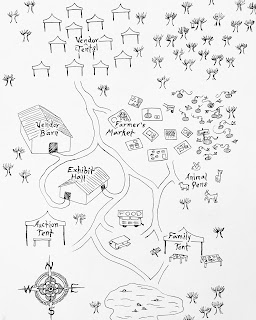 Vendor
Tents
Vendor
Barn
Farmer's
Market
Exhibit
Hall
Animal
Pens
Auction
Tent
Family
Tent
N
W E
S